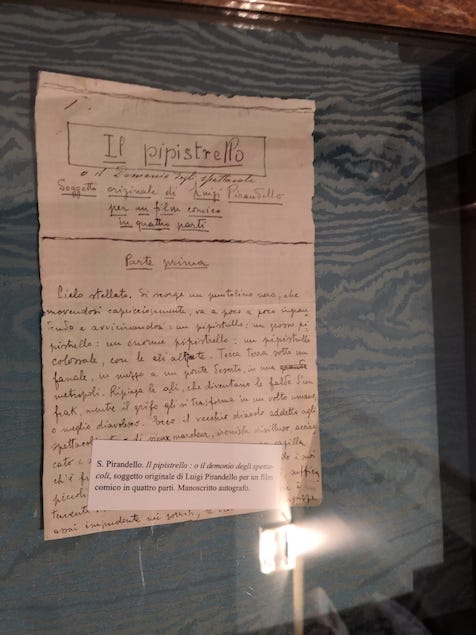 Il pipistrello
o il Demonio degli spettacoli
Soggetto originale di Luigi Pirandello
per un film comico
in quattro parti
Parte prima
Cielo stellato. Si scorge un puntolino nero, che
movendosi capricciosamente, va a poco a poco ingran
dendo e avvicinandosi: un pipistrello: un grosso pi
pistrello: un enorme pipistrello: un pipistrello
colossale, con le ali alzate. Tocca terra sotto un
fanale, in mezzo a un ponte deserto, in una
metropoli. Ripiega le ali, che diventano le falde d'un
frak, mentre il grifo gli si trasforma in un volto umano,
o meglio diavolesco. Ecco il vecchio diavolo addetto agli
spettacoli
vieux marcheur, ironista disilluso,
ch'è
piccoli
assai impudente nei
S. Pirandello. Il pipistrello : o il demonio degli spetta-
coli, soggetto originale di Luigi Pirandello per un film
comico in quattro parti. Manoscritto autografo.